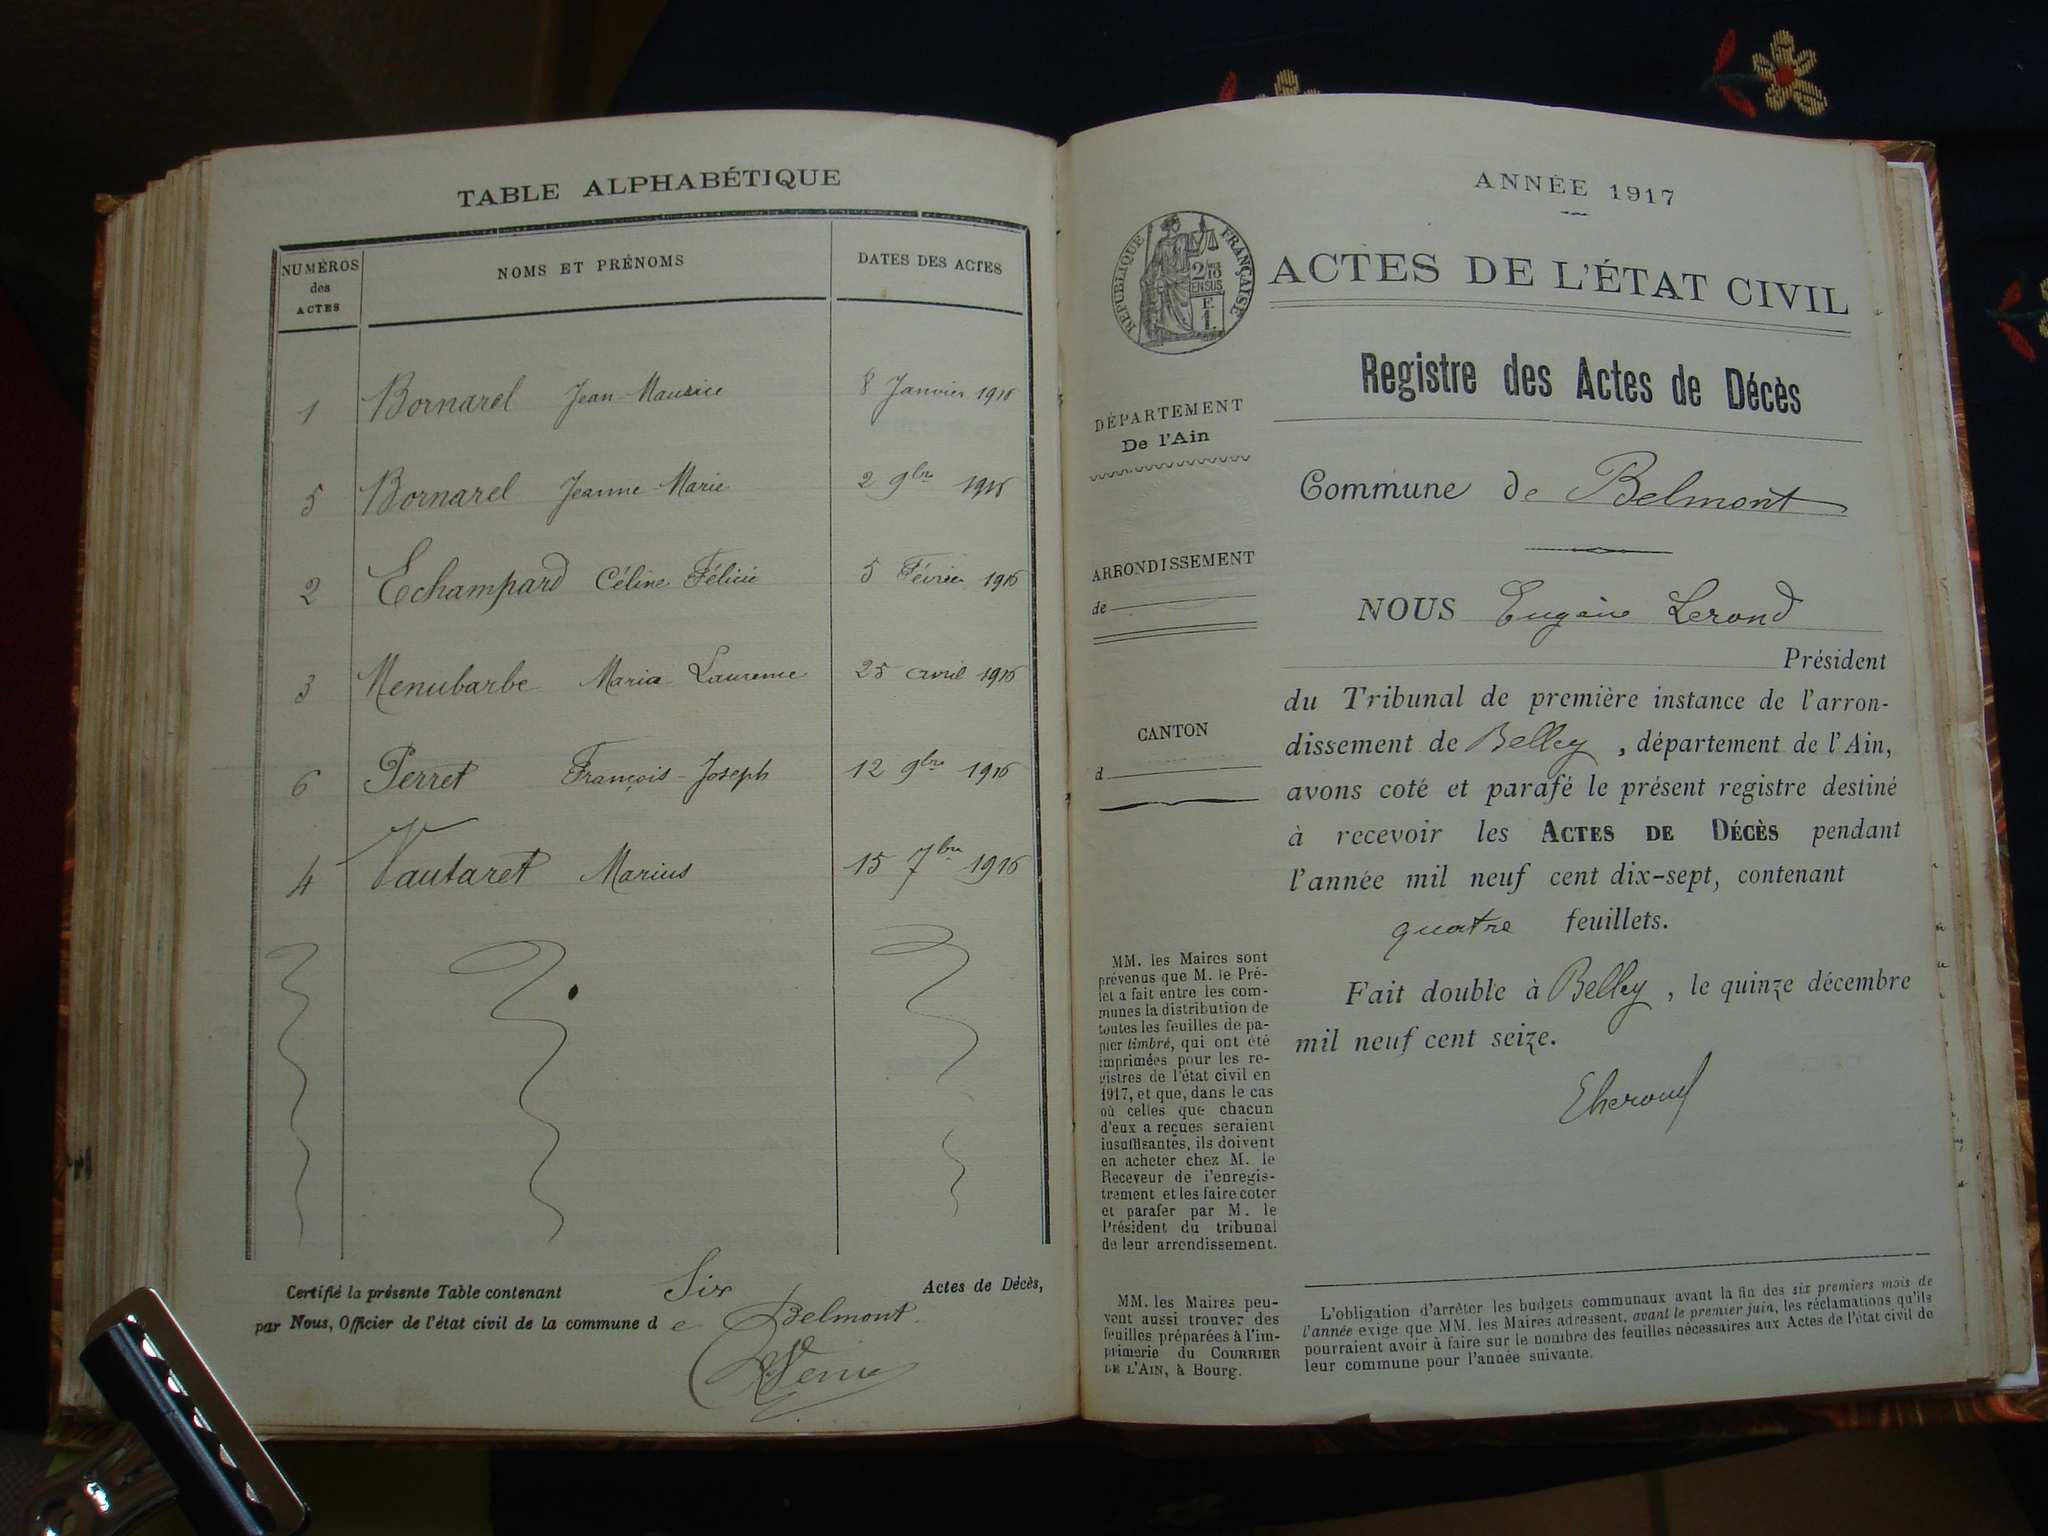 TABLE ALPHABÉTIQUE
NUMÉROS des ACTES NOMS ET PRÉNOMS DATES DES ACTES
1 Bornarel Jean-Maurice 8 Janvier 1916
5 Bornarel Jeanne-Marie 2 9bre 1916
2 Echampard Céline Félicie 5 Février 1916
3 Menubarbe Maria Laurence 25 avril 1916
6 Perret François-Joseph 12 9bre 1916
4 Vautaret Marius 15 7bre 1916
Certifié la présente Table contenant Six Actes de Décès,
par Nous, Officier de l'état civil de la commune de Belmont
ANNÉE 1917
RÉPUBLIQUE FRANÇAISE
2/10
EN SUS
F.
1.
ACTES DE L'ÉTAT CIVIL
Registre des Actes de Décès
DÉPARTEMENT
De l'Ain
Commune de Belmont
ARRONDISSEMENT
de
CANTON
d
NOUS Eugène Lerond
Président
du Tribunal de première instance de l'arron-
dissement de Belley, département de l'Ain,
avons coté et parafé le présent registre destiné
à recevoir les ACTES DE DÉCÈS pendant
l'année mil neuf cent dix-sept, contenant
quatre feuillets.
Fait double à Belley, le quinze décembre
mil neuf cent seize.
MM. les Maires sont
prévenus que M. le Pré-
fet a fait entre les com-
munes la distribution de
toutes les feuilles de pa-
pier timbré, qui ont été
imprimées pour les re-
gistres de l'état civil en
1917, et que, dans le cas
où celles que chacun
d'eux a reçues seraient
insuffisantes, ils doivent
en acheter chez M. le
Receveur de l'enregis-
trement et les faire coter
et parafer par M. le
Président du tribunal
de leur arrondissement.
MM. les Maires peu-
vent aussi trouver des
feuilles préparées à l'im-
primerie du COURRIER
DE L'AIN, à Bourg.
L'obligation d'arrêter les budgets communaux avant la fin des six premiers mois de
l'année exige que MM. les Maires adressent, avant le premier juin, les réclamations qu'ils
pourraient avoir à faire sur le nombre des feuilles nécessaires aux Actes de l'état civil de
leur commune pour l'année suivante.